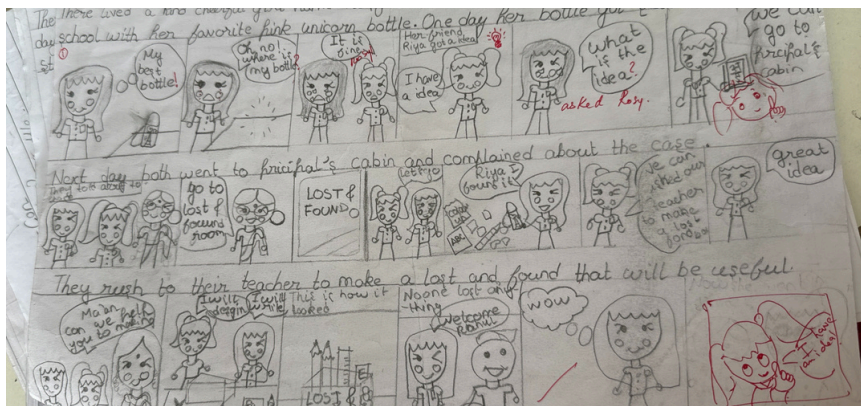 The There lived a kind cheerful girl
school with her favorite pink unicorn bottle. One day her bottle got
day
1
My
best
bottle!
Oh no!
where is
my bottle?
It is
fine
Her friend
Riya got a idea
I have
a idea
What
is the
idea?
asked Rosy.
we can
go to
pricipal's
cabin
Next day both went to pricipal's cabin and complained about the case.
go to
lost &
found
room
LOST &
FOUND
Let's go
Riya I
found it!
ABC
we can
to teacher
to make
a lost
great
idea
They rush to their teacher to make a lost and found that will be useful
Ma'am
can we help
you to making
I will
design
I will
write
This is how it
looked
LOST &
No one lost any
-thing
Welcome
Rahul
WOW
I have
an idea!